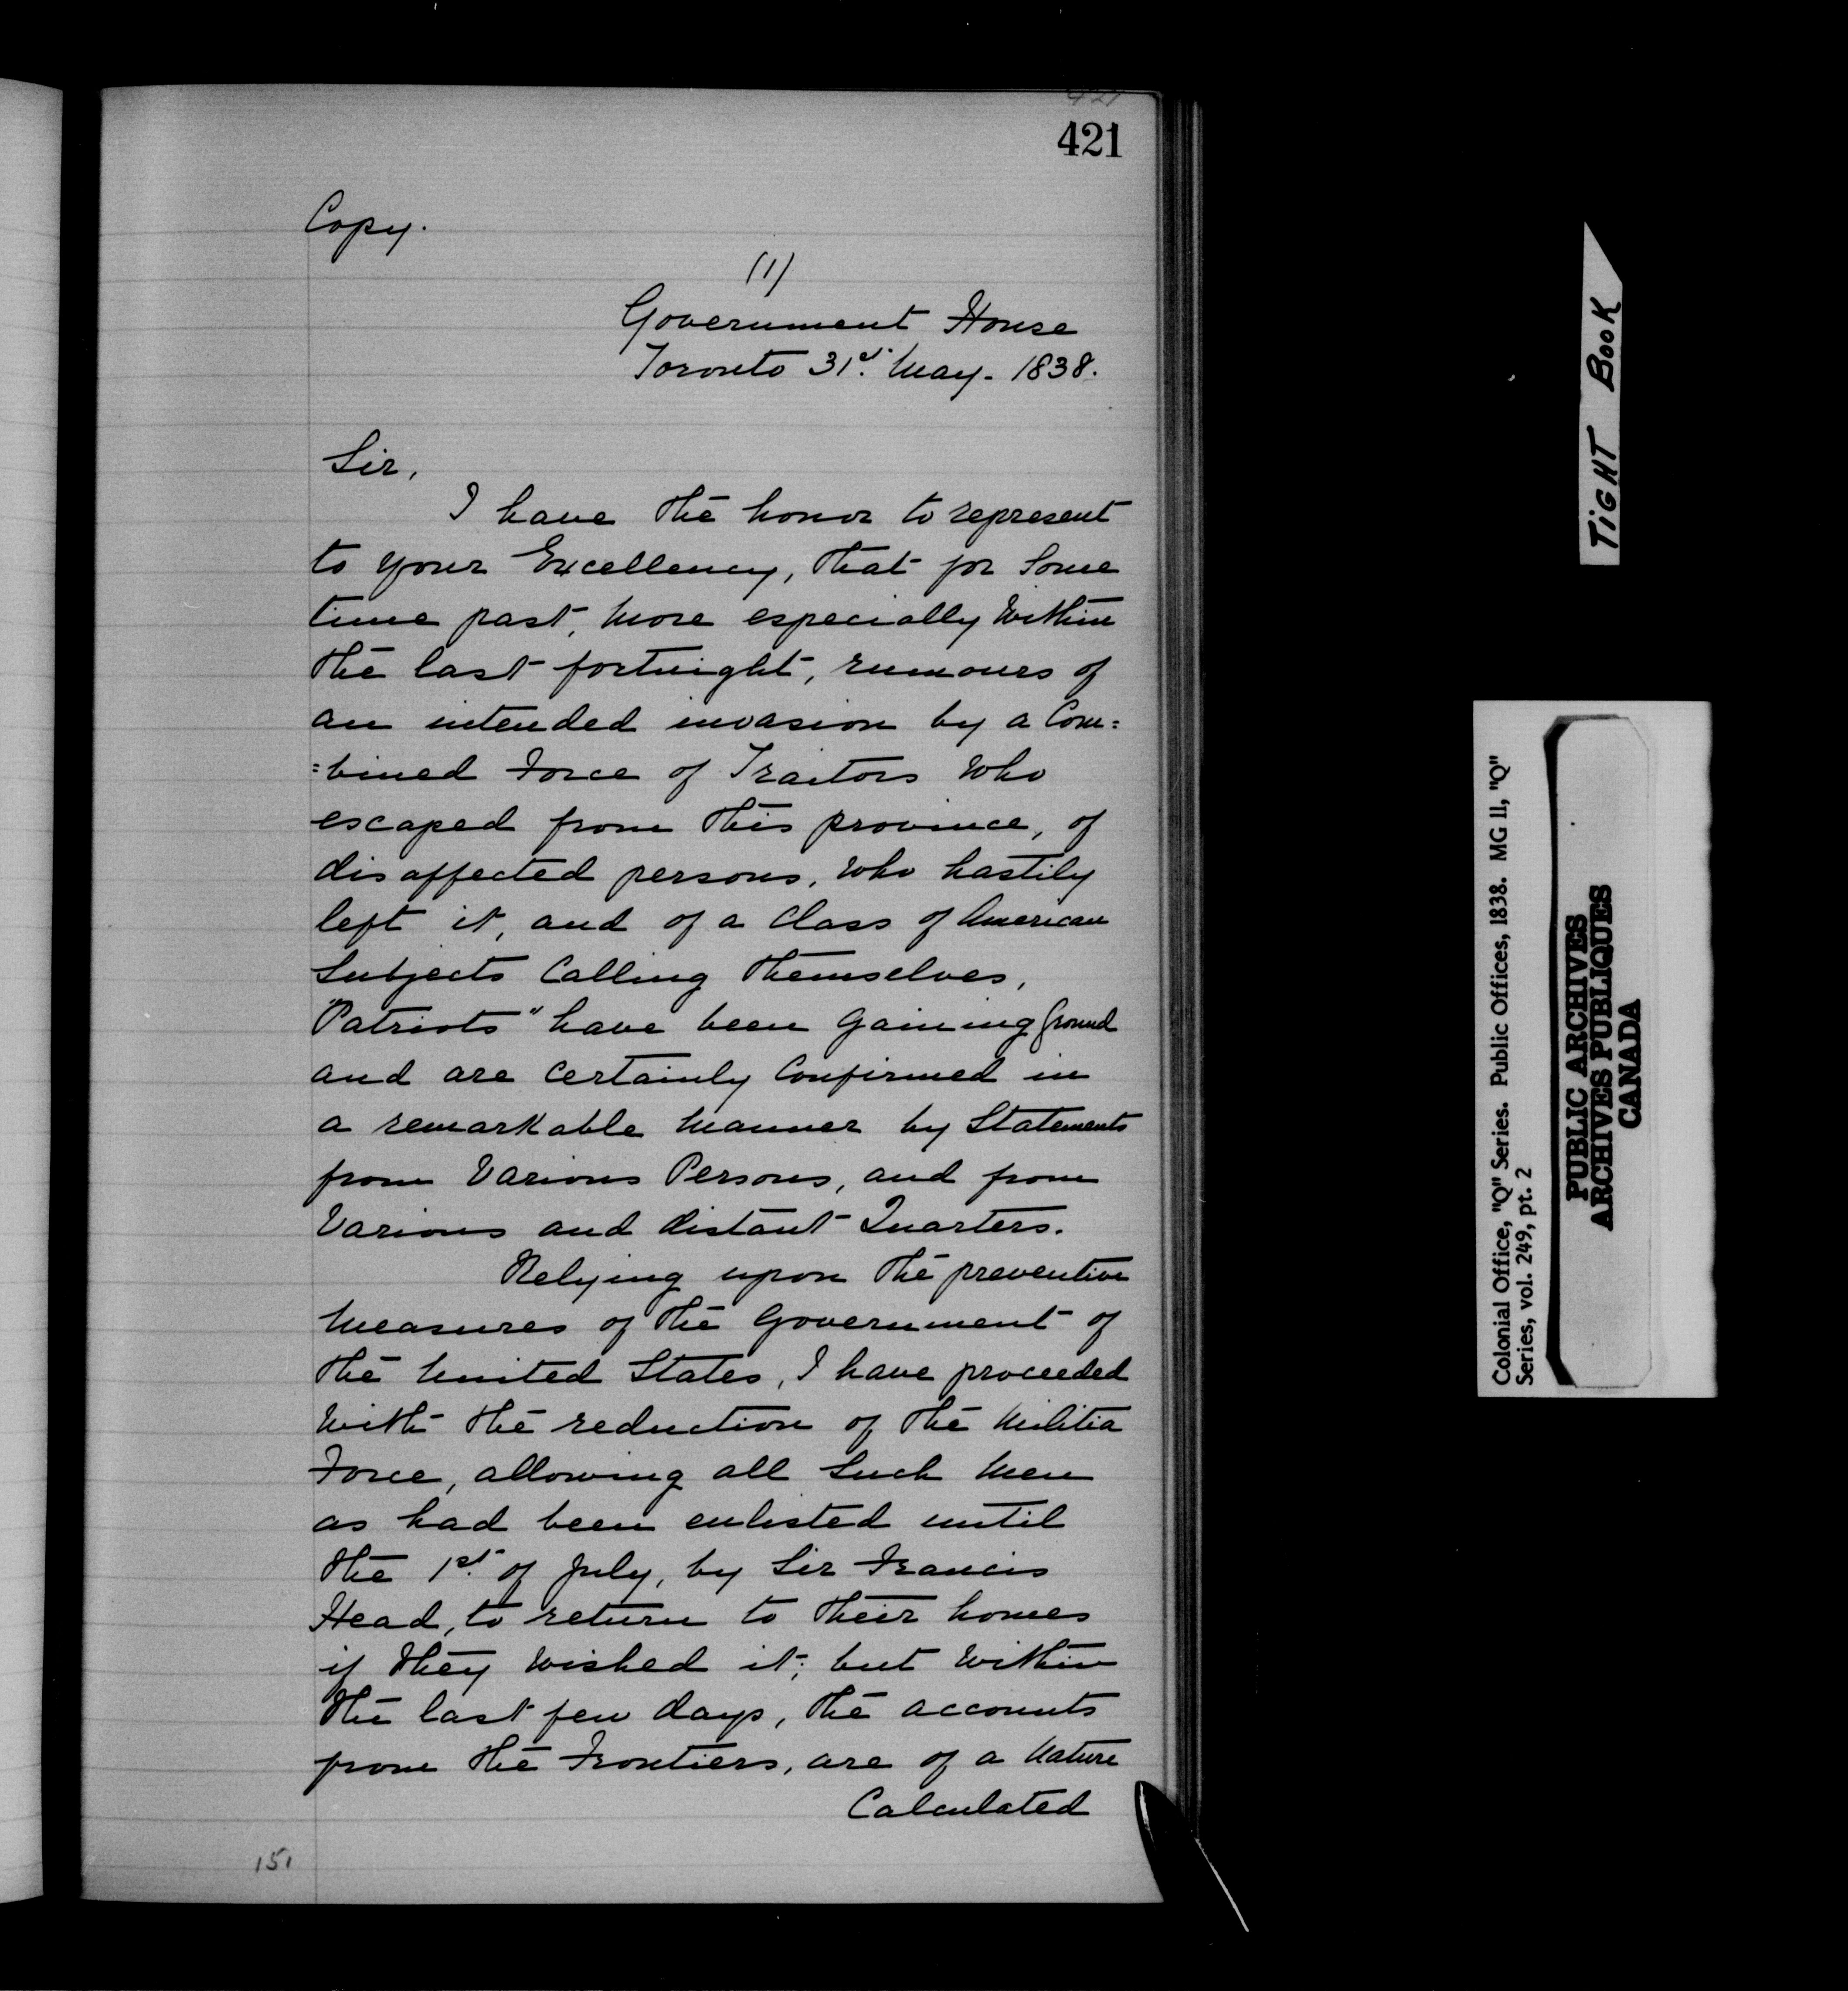 421
421
Copy.
(1)
Government House
Toronto 31st. May. 1838.
Sir,
I have the honor to represent
to your Excellency, that for Some
time past, more especially within
the last fortnight, rumours of
an intended invasion by a Com=
=bined Force of Traitors who
escaped from this province, of
disaffected persons, who hastily
left it, and of a Class of American
Subjects Calling themselves,
"Patriots" have been gaining ground
and are Certainly Confirmed in
a remarkable manner by Statements
from Various Persons, and from
Various and distant Quarters.
Relying upon the preventive
measures of the Government of
the United States, I have proceeded
with the reduction of the Militia
Force, allowing all Such Men
as had been enlisted until
the 1st. of July, by Sir Francis
Head, to return to their homes
if they wished it; but within
the last few days, the accounts
from the Frontiers, are of a Nature
Calculated
151
TIGHT BOOK
Colonial Office, "Q" Series. Public Offices, 1838. MG 11, "Q"
Series, vol. 249, pt. 2
PUBLIC ARCHIVES
ARCHIVES PUBLIQUES
CANADA